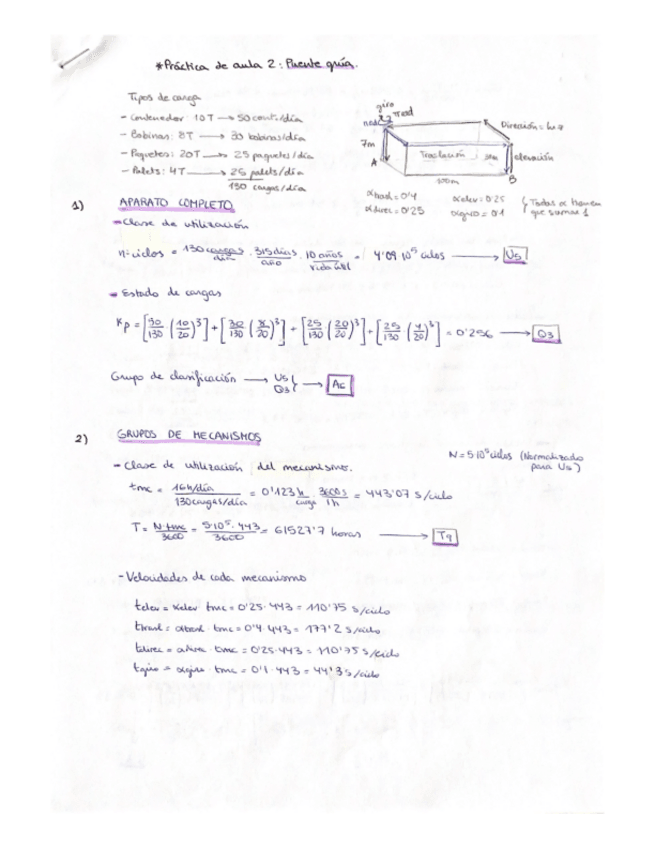 *Práctica de aula 2: Puente grúa.
Tipos de carga
- Contenedor: 10T → 50 cont./día
- Bobinas: 8T → 30 bobinas/día
- Paquetes: 20T → 25 paquetes/día
- Palets: 4T → 25 palets/día
130 cargas/día
giro
trasl
7m
A
Traslación
Dirección
elevación
B
100m
αtrasl = 0'4
αelev = 0'25
αdirec = 0'25
αgiro = 0'1
Todas α tienen que sumar 1
1) APARATO COMPLETO
- Clase de utilización
nº ciclos = 130 cargas/día · 315 días/año · 10 años/vida útil = 4'09 10⁵ ciclos → U5
- Estado de cargas
Kp = [50/130 (10/20)³] + [30/130 (8/20)³] + [25/130 (20/20)³] + [25/130 (4/20)³] = 0'256 → Q3
Grupo de clasificación → U5 Q3 } → A6
2) GRUPOS DE MECANISMOS
- Clase de utilización del mecanismo.
N = 5·10⁵ ciclos (Normalizado para U5)
tmc = 16h/día / 130cargas/día = 0'123 h/carga · 3600s/1h = 443'07 s/ciclo
T = N·tmc/3600 = 5·10⁵·443/3600 = 61527'7 horas → T9
- Velocidades de cada mecanismo
telev = αelev · tmc = 0'25·443 = 110'75 s/ciclo
ttrasl = αtrasl · tmc = 0'4·443 = 177'2 s/ciclo
tdirec = αdirec · tmc = 0'25·443 = 110'75 s/ciclo
tgiro = αgiro · tmc = 0'1·443 = 44'3 s/ciclo